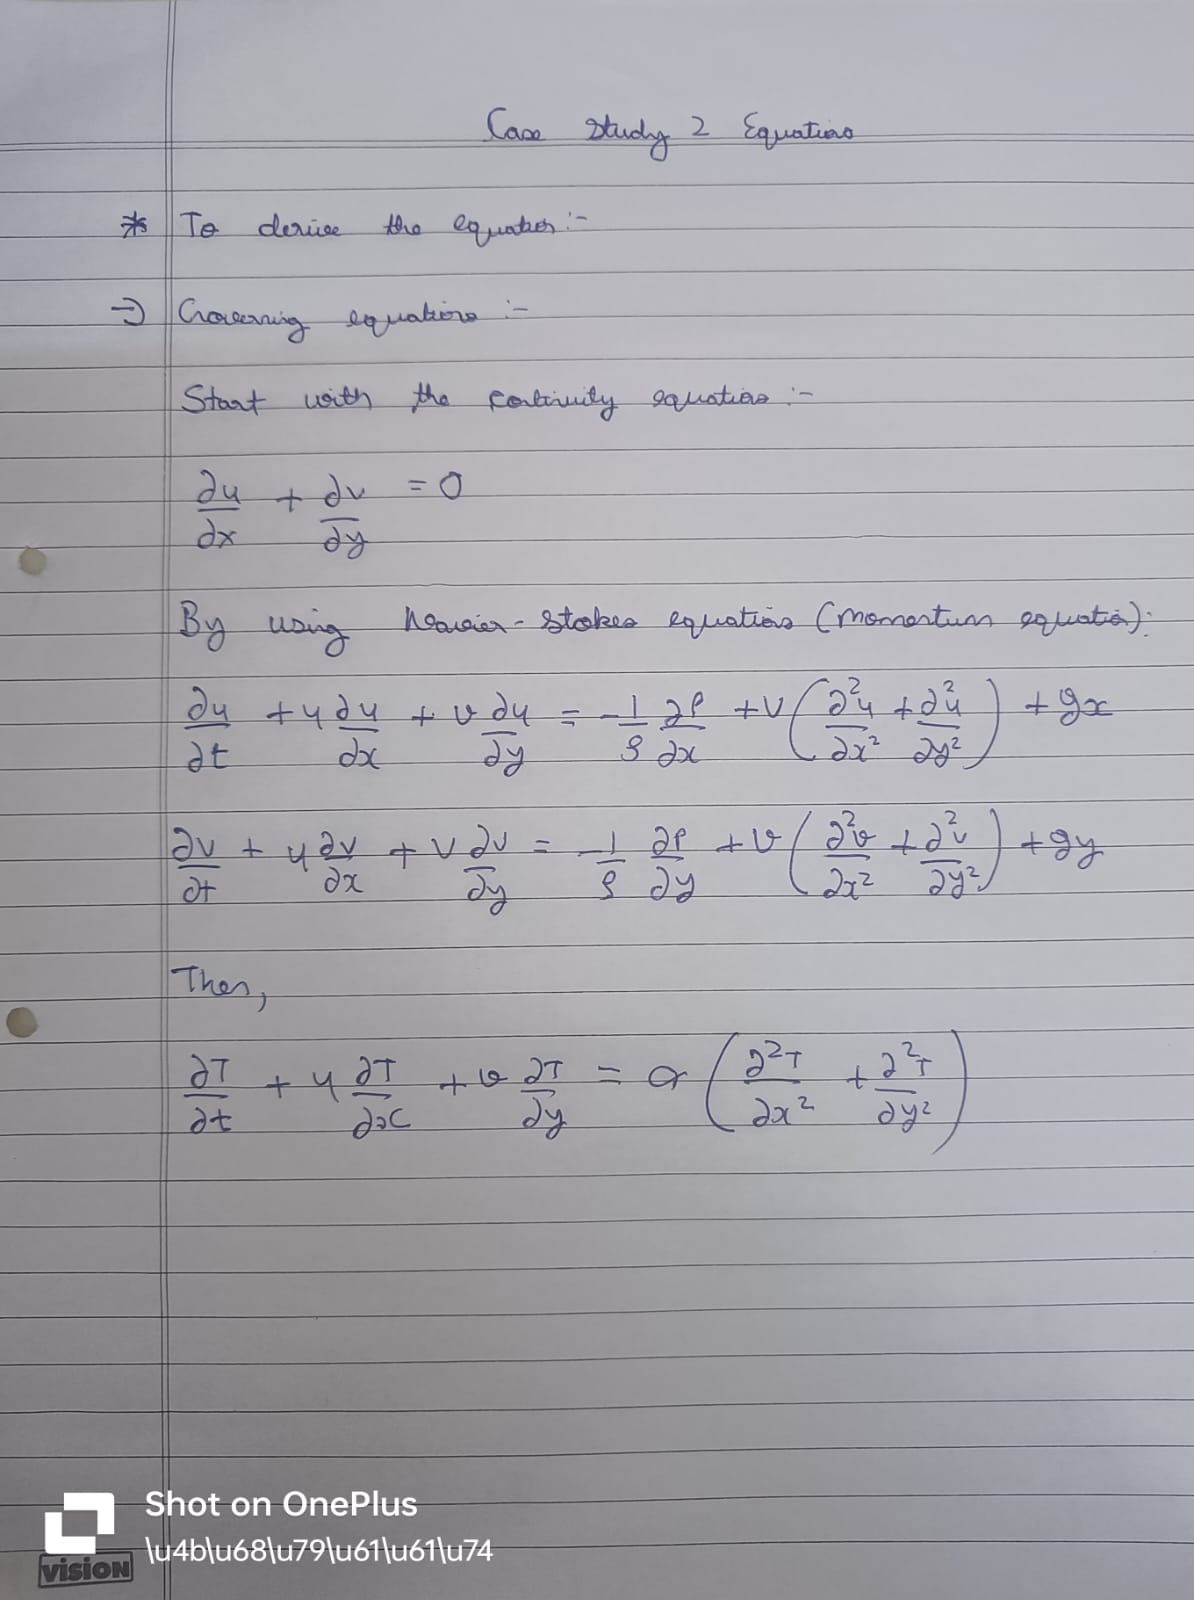 Case Study 2 Equations
* To derive the equation :-
⇒ Governing equations :-
Start with the continuity equations :-
∂u/∂x + ∂v/∂y = 0
By using Navier-Stokes equations (Momentum equation):
∂u/∂t + u ∂u/∂x + v ∂u/∂y = -1/ρ ∂P/∂x + ν (∂²u/∂x² + ∂²u/∂y²) + gx
∂v/∂t + u ∂v/∂x + v ∂v/∂y = -1/ρ ∂P/∂y + ν (∂²v/∂x² + ∂²v/∂y²) + gy
Then,
∂T/∂t + u ∂T/∂x + v ∂T/∂y = α (∂²T/∂x² + ∂²T/∂y²)
Shot on OnePlus
\u4b\u68\u79\u61\u61\u74
VISION